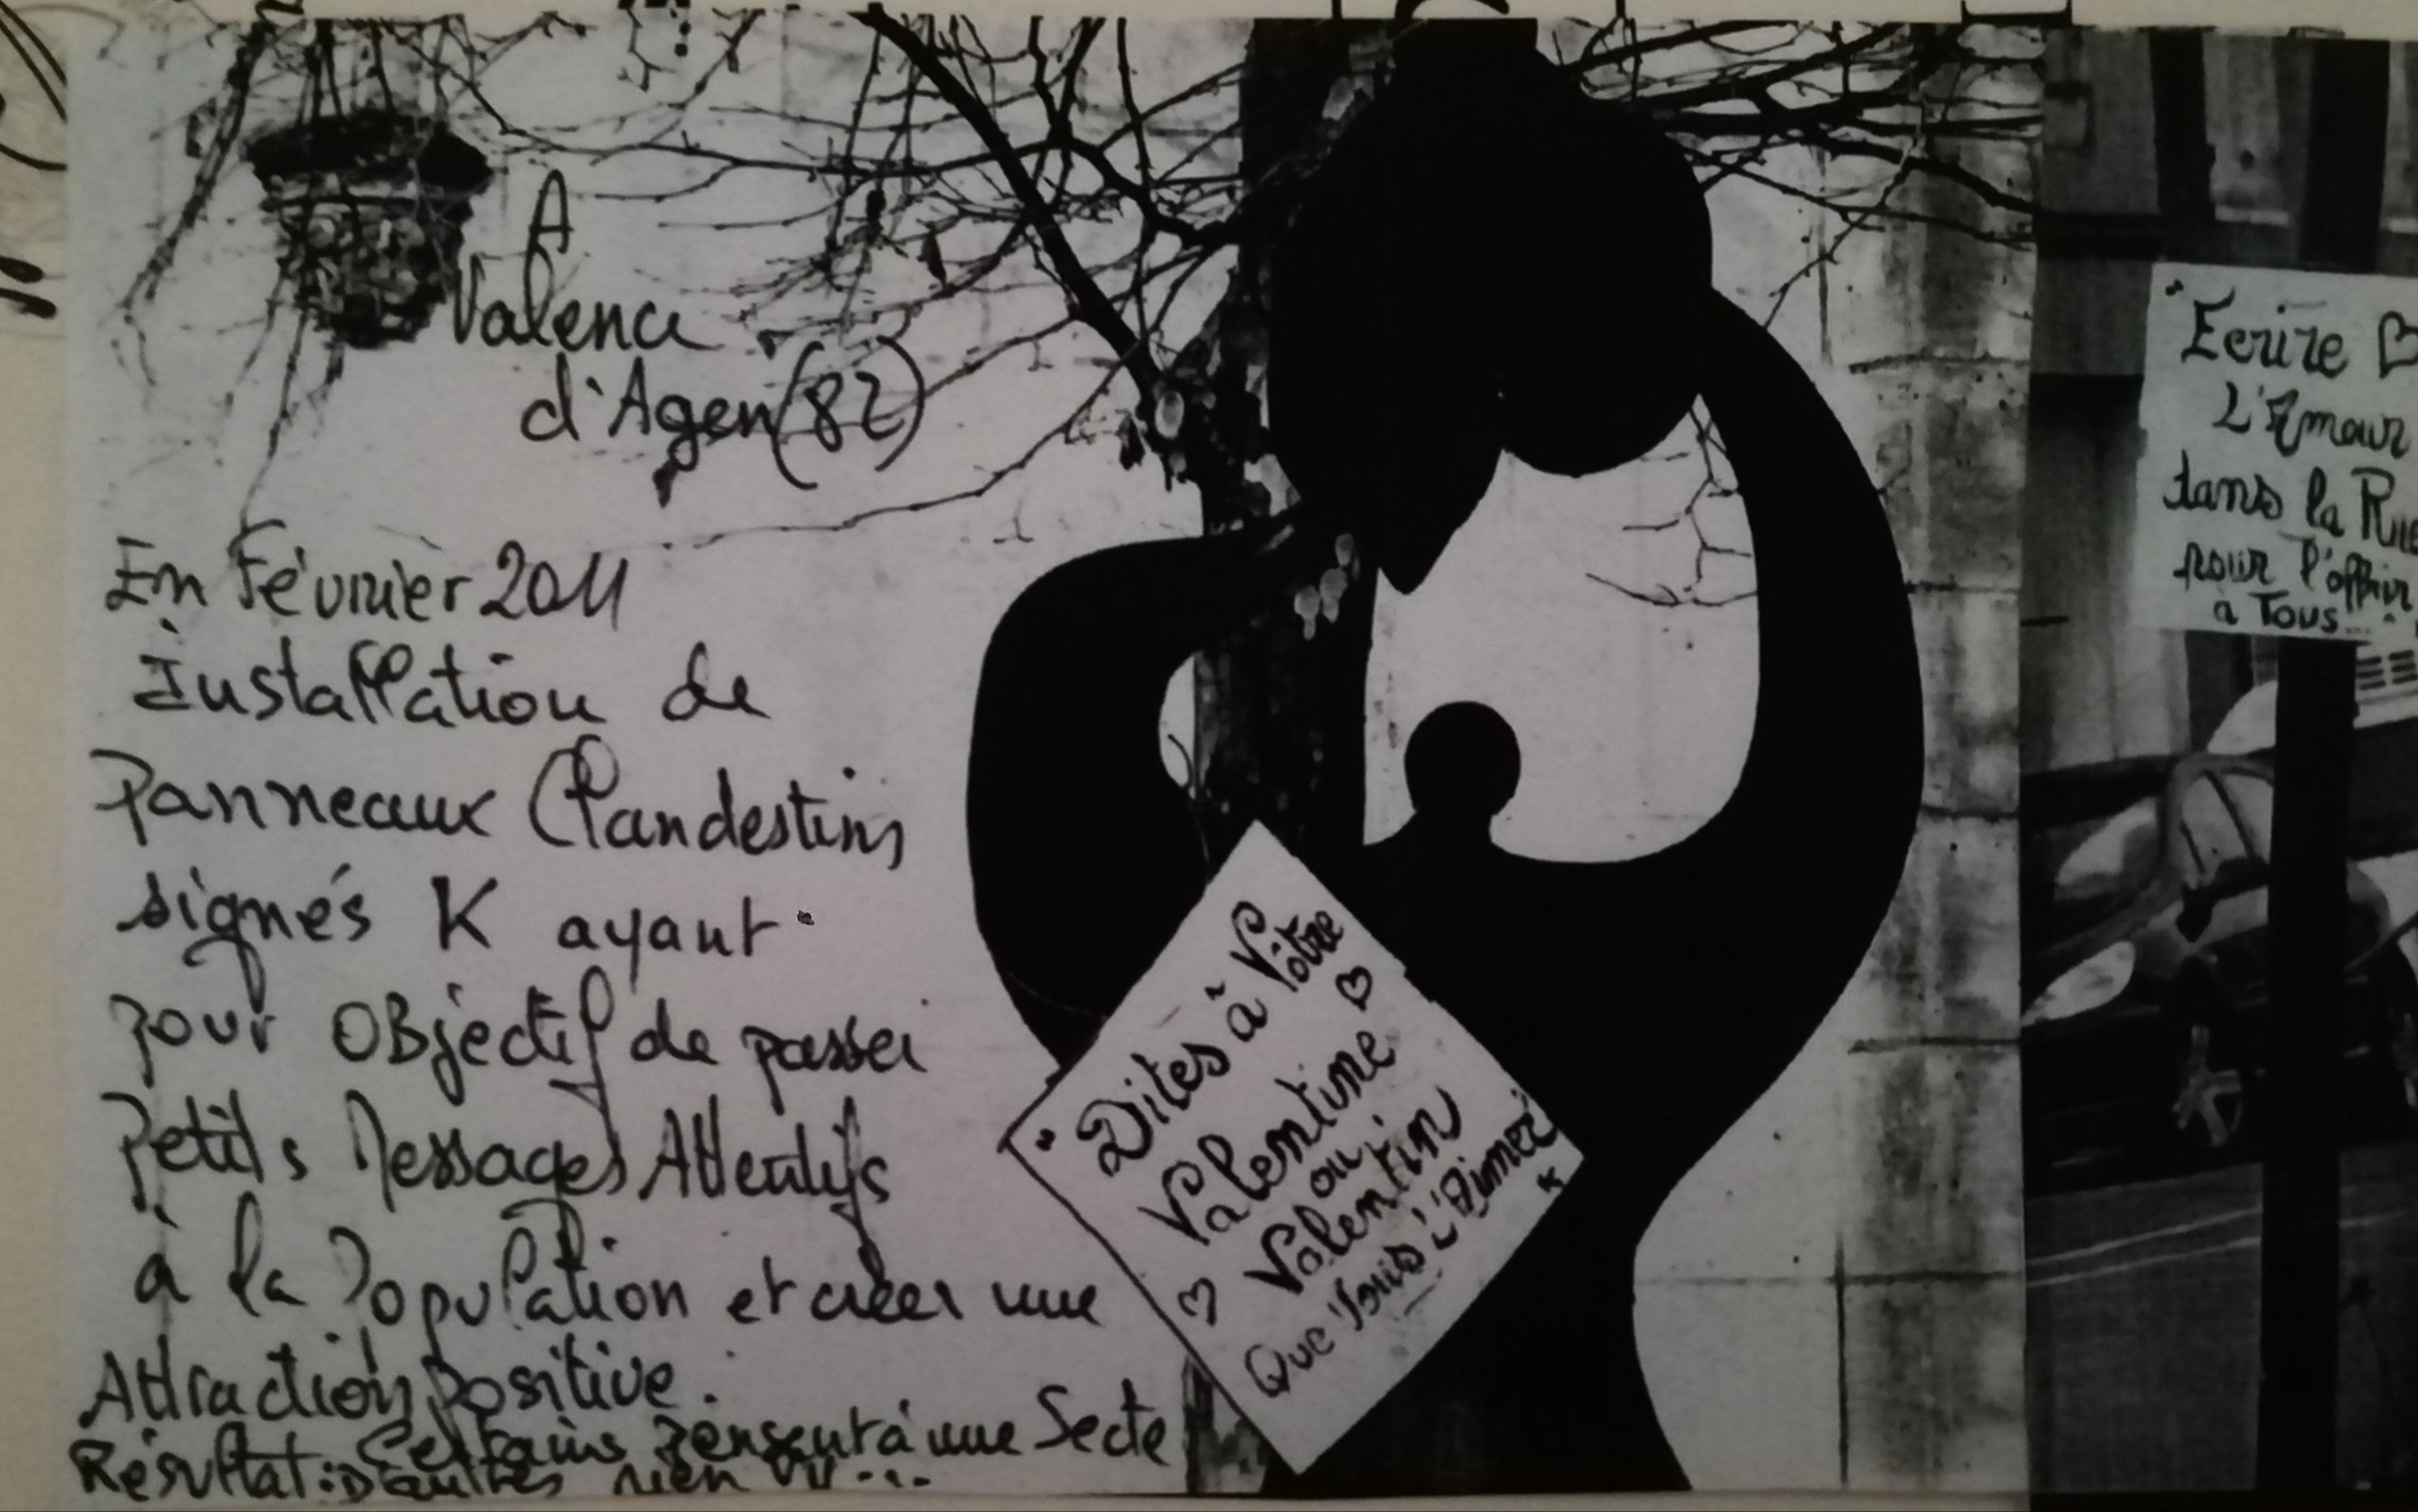 A
Valence
d'Agen (82)
En Février 2011
installation de
Panneaux Clandestins
signés K ayant
pour OBjectif de passer
Petits Messages Attentifs
à la Population et créer une
Attraction positive.
Résultat: Certains pensent à une Secte
D'autres rien vu ...
"Dites à Vôtre
Valentine
ou
Valentin
Que Vous L'Aimez
K
"Ecrire
L'Amour
dans la Rue
pour l'offrir
à Tous..."